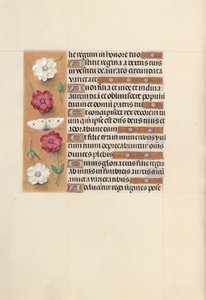 lie regum in honore tuo
Astitit regina a dextris tuis
in vestitu deaurato circundata
varietate
Audi filia et vide et inclina
aurem et obliviscere populum
tuum et domum patris tui
Et concupiscet rex decorem tu
um qm ipse est dns deus tuus et
adorabunt eum
Et filie tyri in
vultum tuum deprecabuntur
divites plebis
eius filie regis
ab intus in fimbriis aureis
amicta varietatibus
Adducentur regi virgines post